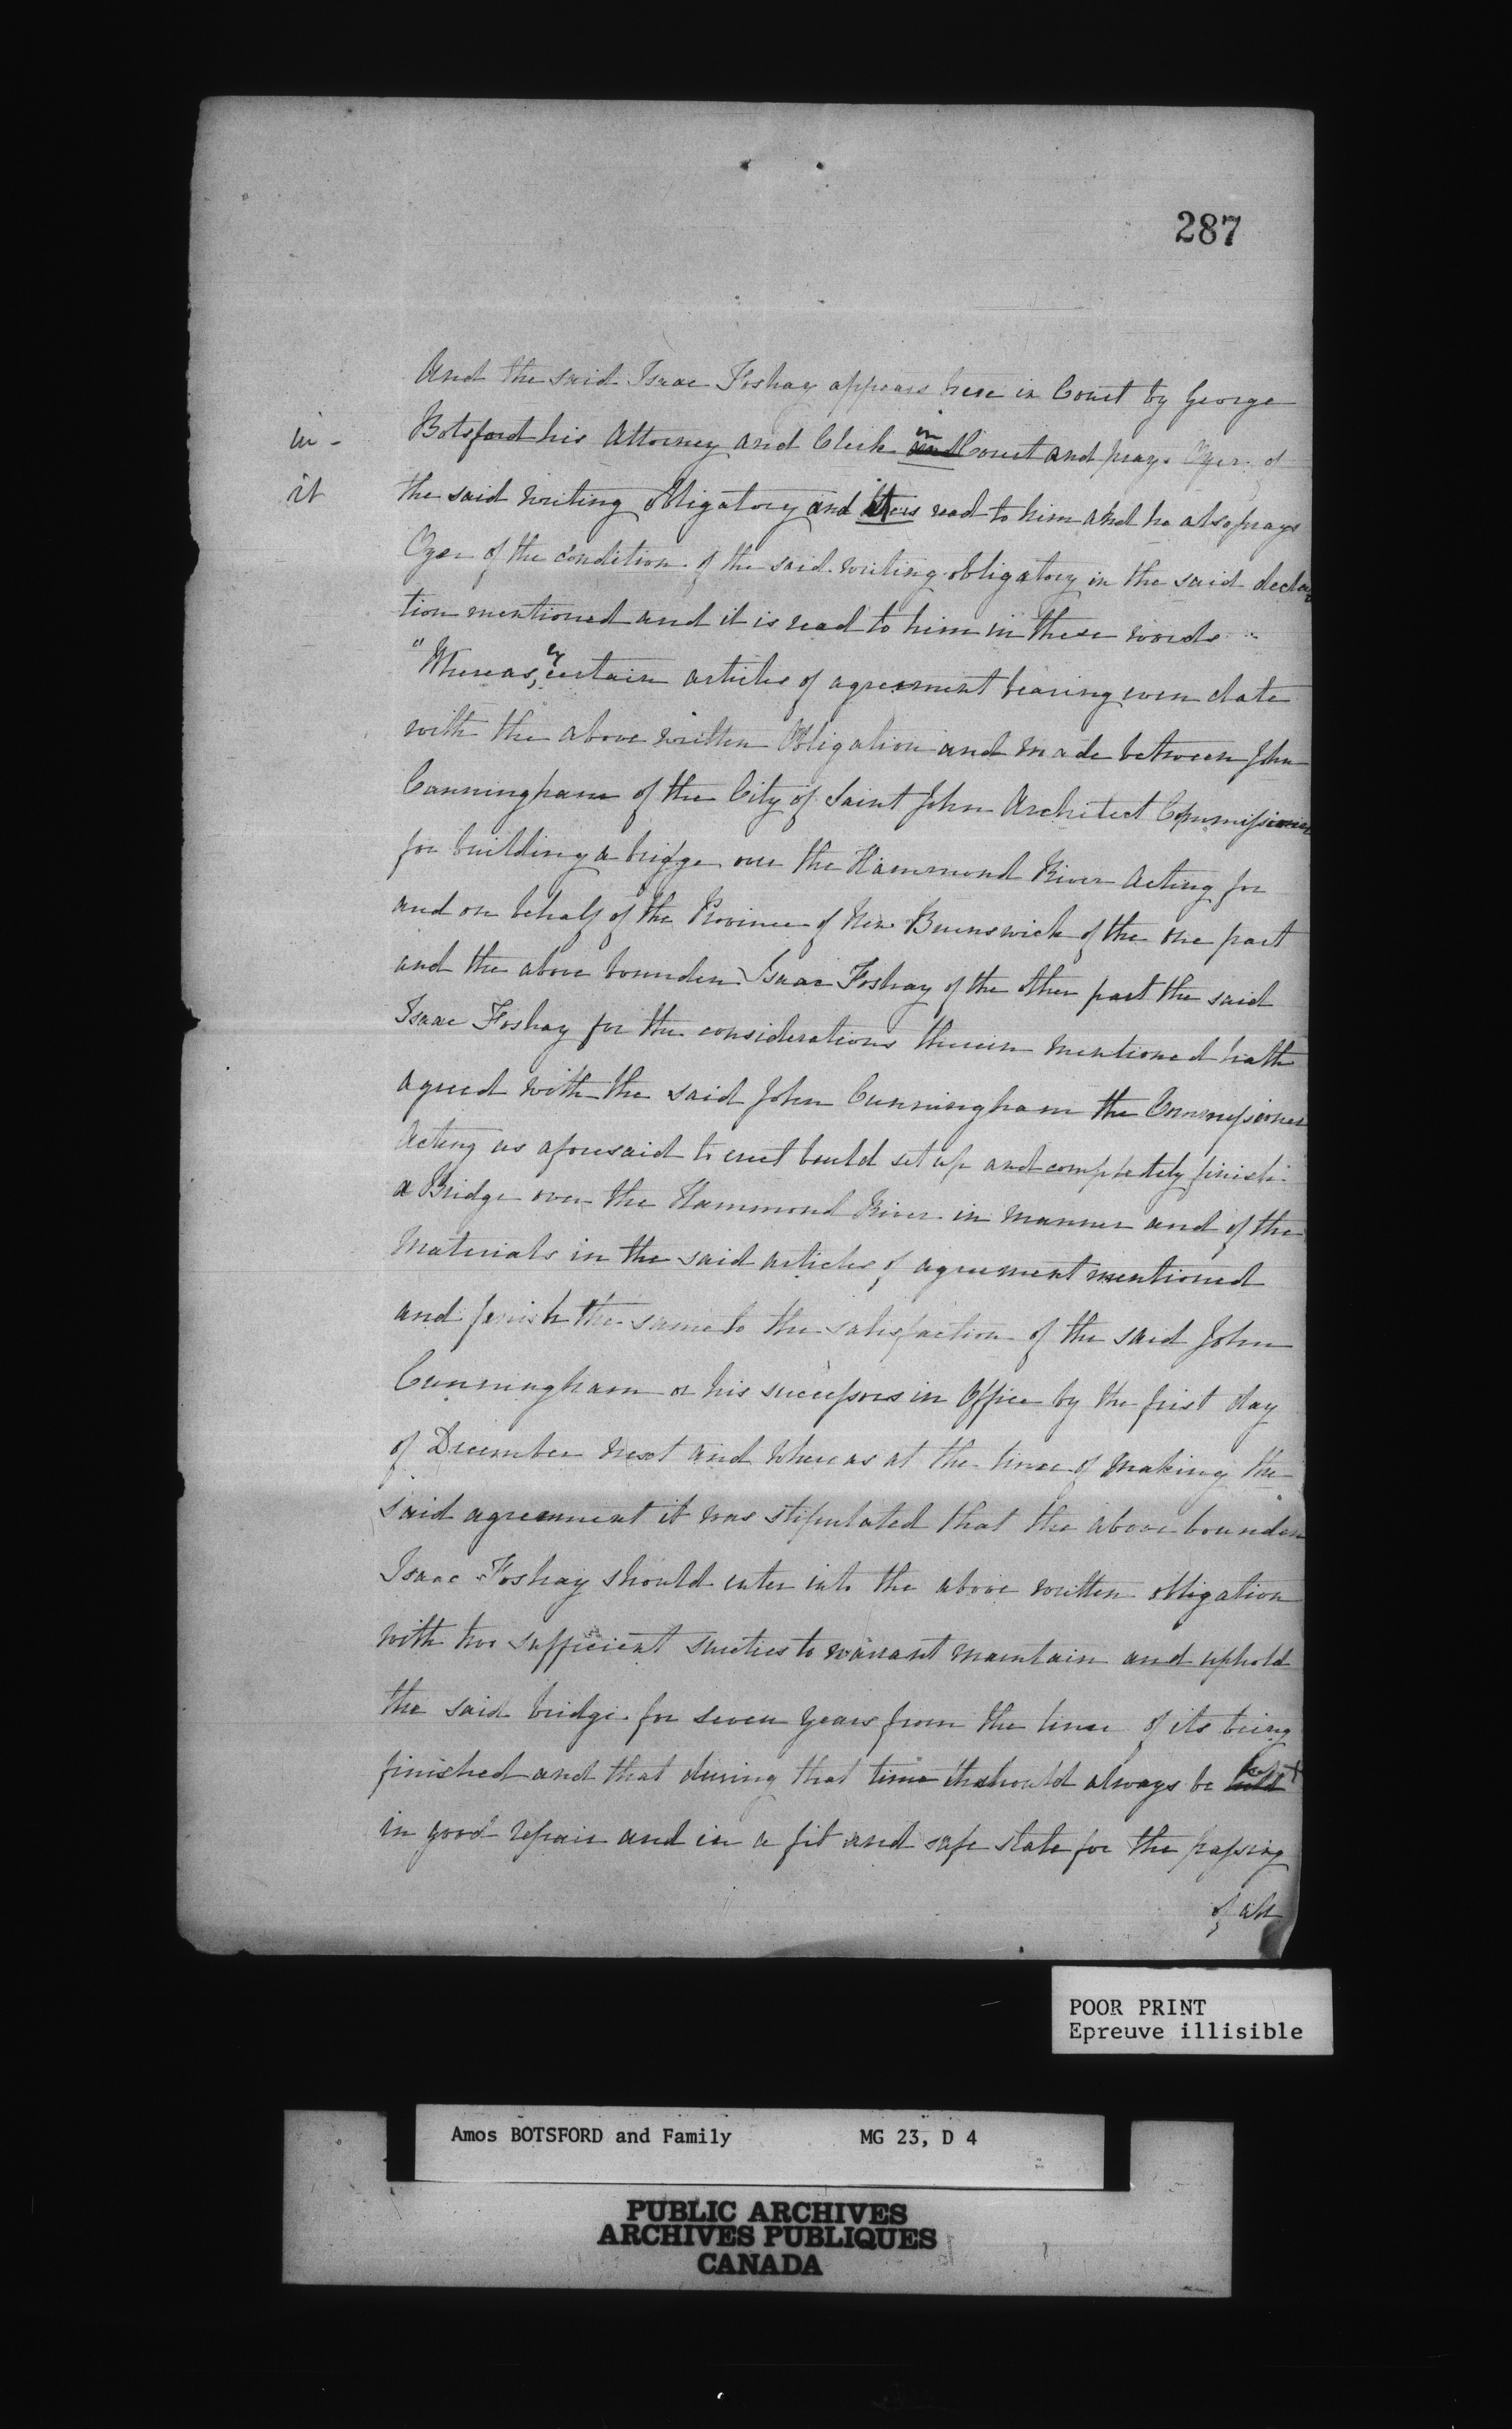 287
And the said Isaac Foshay appears here in Court by George
in -
Botsford his Attorney and Clerk in Court and prays Oyer of
it
the said writing obligatory and it is read to him and he also prays
Oyer of the condition of the said writing obligatory in the said declara
tion mentioned and it is read to him in these words
"Whereas, by certain articles of agreement bearing even date
with the above written Obligation and made between John
Cunningham of the City of Saint John Architect Commissioner
for building a bridge over the Hammond River Acting for
and on behalf of the Province of New Brunswick of the one part
and the above bounden Isaac Foshay of the other part the said
Isaac Foshay for the considerations therein mentioned hath
agreed with the said John Cunningham the Commissioner
Acting as aforesaid to erect build set up and completely finish
a Bridge over the Hammond River in manner and of the
Materials in the said articles of agreement mentioned
and finish the same to the satisfaction of the said John
Cunningham or his successors in Office by the first day
of December next and whereas at the time of making the
said agreement it was stipulated that the above bounden
Isaac Foshay should enter into the above written obligation
with two sufficient sureties to warrant maintain and uphold
the said bridge for seven years from the time of its being
finished and that during that time it should always be kept
in good repair and in a fit and safe state for the passing
of all
POOR PRINT
Epreuve illisible
Amos BOTSFORD and Family MG 23, D 4
PUBLIC ARCHIVES
ARCHIVES PUBLIQUES
CANADA